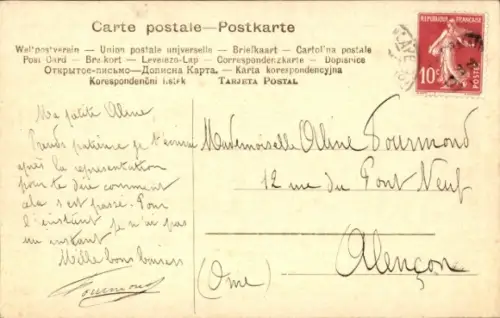 Carte postale — Postkarte
Weltpostverein — Union postale universelle — Briefkaart — Cartolina postale
Post Card — Brevkort — Levelezo-Lap — Correspondenzkarte — Dopisnice
Открытое-письмо — Дописна Карта. — Karta korespondencyjna
Korespondenční lístek Tarjeta Postal
REPUBLIQUE FRANÇAISE
10c
POSTES
Ma petite Aline,
Prends patience je t'écrirai
après la représentation
pour te dire comment
cela s'est passé. Pour
l'instant je n'ai pas
un instant
Mille bons baisers
Fourmond
Mademoiselle Aline Fourmond
12 rue du Pont Neuf
Alençon
(Orne)